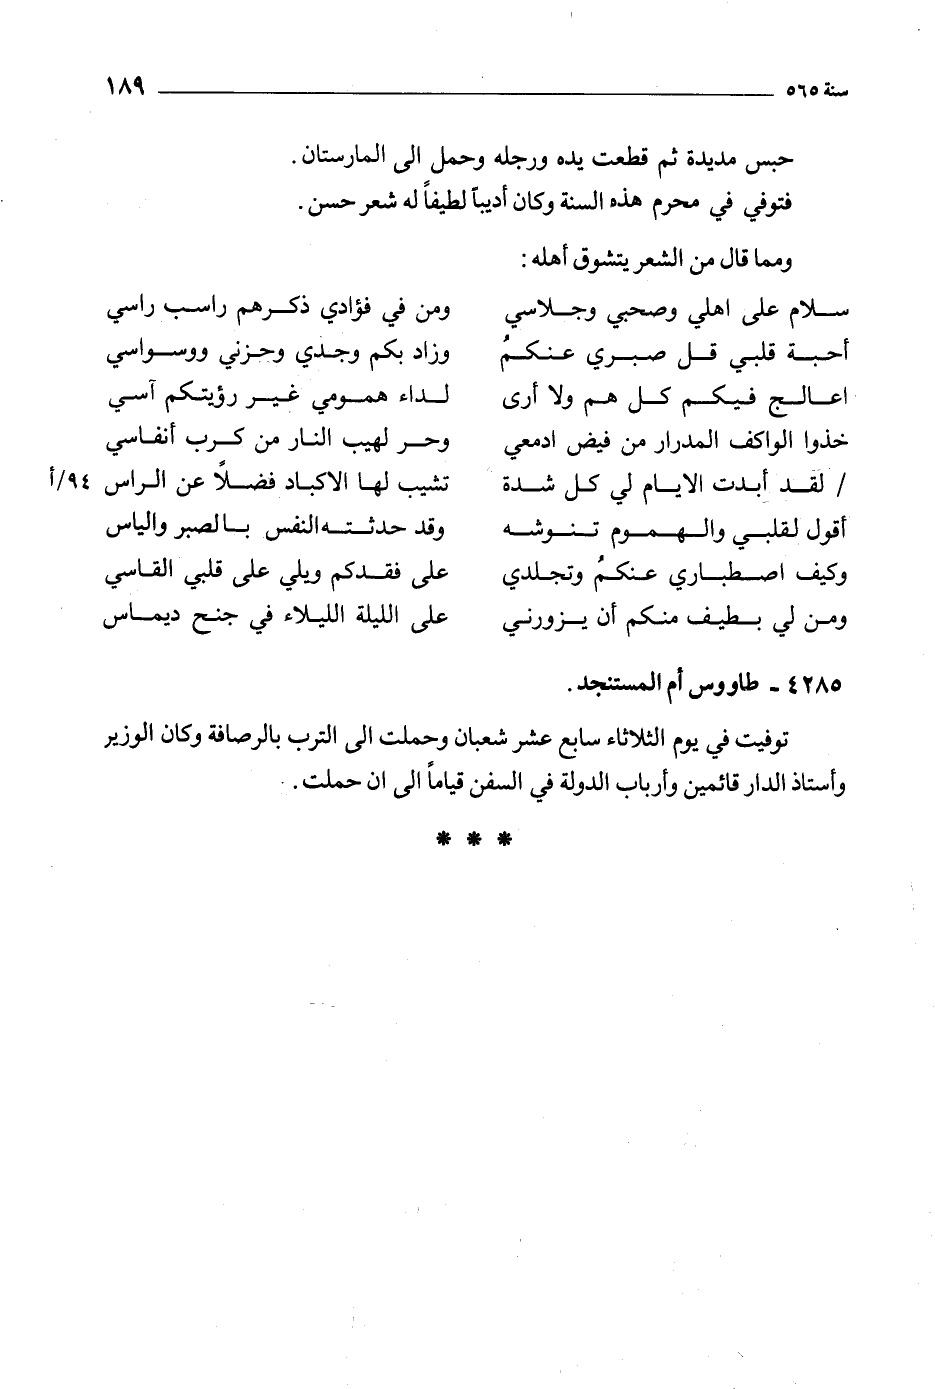 سنة ٥٦٥ ١٨٩
حبس مديدة ثم قطعت يده ورجله وحمل الى المارستان .
فتوفي في محرم هذه السنة وكان أديباً لطيفاً له شعر حسن .
ومما قال من الشعر يتشوق أهله :
سلام على اهلي وصحبي وجلاسي ومن في فؤادي ذكرهم راسب راسي
أحبة قلبي قل صبري عنكمُ وزاد بكم وجدي وحزني ووسواسي
اعالج فيكم كل هم ولا أرى لداء همومي غير رؤيتكم آسي
خذوا الواكف المدرار من فيض ادمعي وحر لهيب النار من كرب أنفاسي
/ لقد أبدت الايام لي كل شدة تشيب لها الاكباد فضلاً عن الراس ٩٤/أ
أقول لقلبي والهموم تنوشه وقد حدثته النفس بالصبر والياس
وكيف اصطباري عنكمُ وتجلدي على فقدكم ويلي على قلبي القاسي
ومن لي بطيف منكم أن يزورني على الليلة الليلاء في جنح ديماس
٤٢٨٥ - طاووس أم المستنجد .
توفيت في يوم الثلاثاء سابع عشر شعبان وحملت الى الترب بالرصافة وكان الوزير
وأستاذ الدار قائمين وأرباب الدولة في السفن قياماً الى ان حملت .
* * *